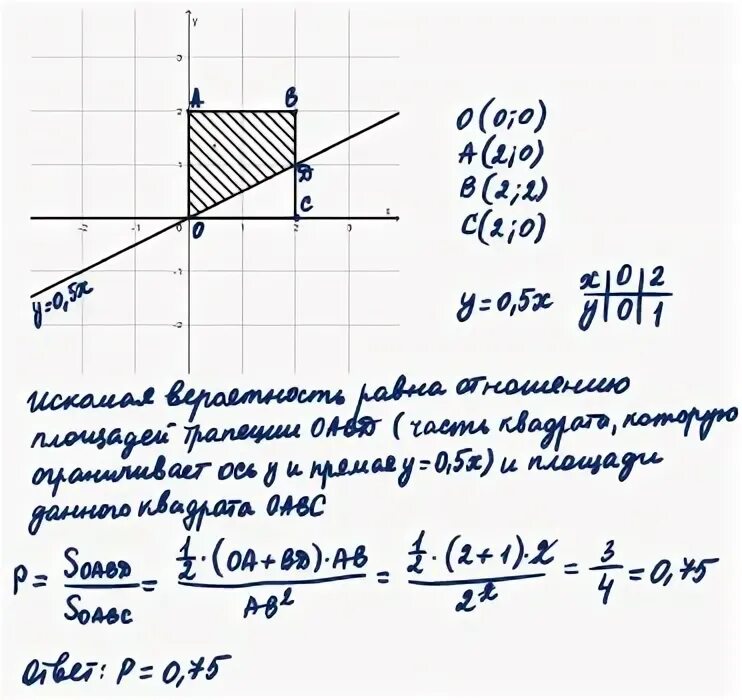 y
3
A B
2
1
Д
C
-2 -1 0 2 3 x
O
-1
y=0,5x
-2
O(0;0)
A(2;0)
B(2;2)
C(2;0)
y=0,5x
x|0|2
y|0|1
Искомая вероятность равна отношению
площадей трапеции OABD (часть квадрата, которую
ограничивает ось y и прямая y=0,5x) и площади
данного квадрата OABC
P = S_OABD / S_OABC = 1/2·(OA+BD)·AB / AB² = 1/2·(2+1)·2 / 2² = 3/4 = 0,75
Ответ: P=0,75